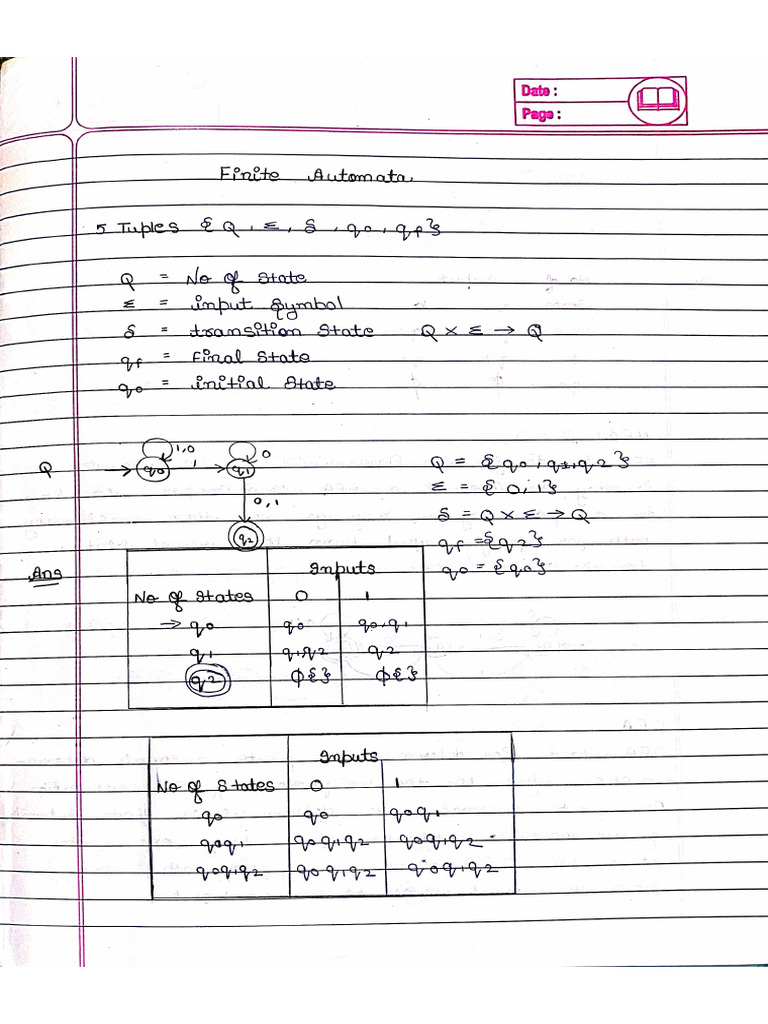 Date :
Page :
Finite Automata.
5 Tuples {Q, Σ, δ, q0, qf}
Q = No of State
Σ = input Symbol
δ = transition State Q × Σ → Q
qf = Final State
q0 = initial State
Q
1,0
0
q0
1
q1
0,1
q2
Q = {q0, q1, q2}
Σ = {0, 1}
δ = Q × Σ → Q
qf = {q2}
q0 = {q0}
Ans
Inputs
No of States 0 1
→ q0 q0 q0,q1
q1 q1,q2 q2
q2 ϕ{} ϕ{}
Inputs
No of States 0 1
q0 q0 q0q1
q0q1 q0q1q2 q0q1q2
q0q1q2 q0q1q2 q0q1q2